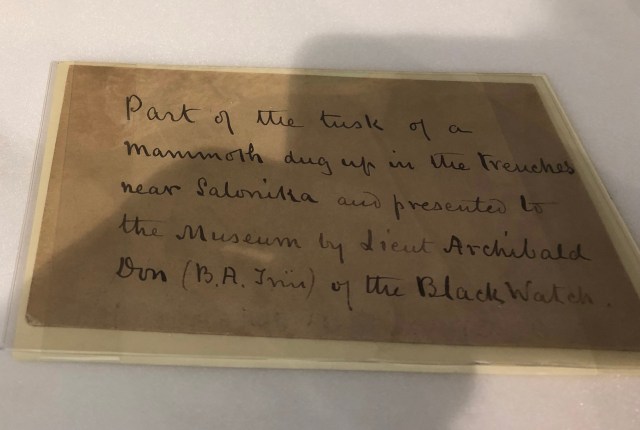 Part of the tusk of a
mammoth dug up in the trenches
near Salonika and presented to
the Museum by Lieut Archibald
Don (B.A. Trin) of the Black Watch.